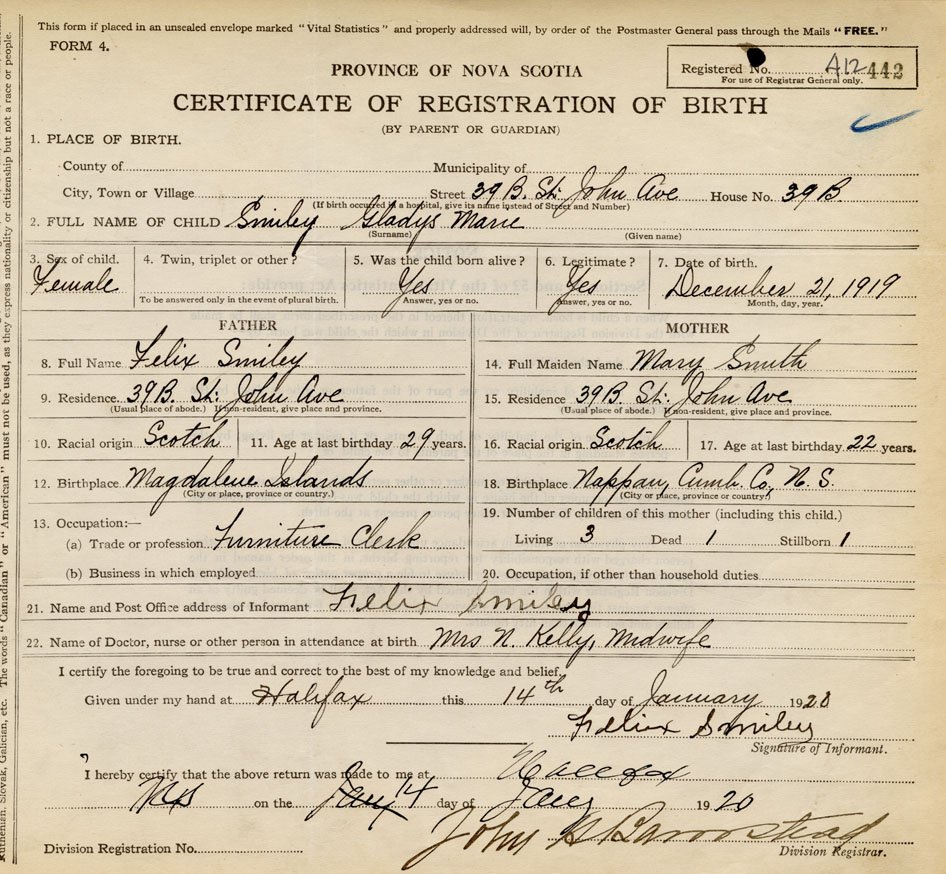 This form if placed in an unsealed envelope marked "Vital Statistics" and properly addressed will, by order of the Postmaster General pass through the Mails "FREE."
FORM 4.
Registered No. A12 442
For use of Registrar General only.
PROVINCE OF NOVA SCOTIA
CERTIFICATE OF REGISTRATION OF BIRTH
(BY PARENT OR GUARDIAN)
1. PLACE OF BIRTH.
County of Municipality of
City, Town or Village Street 39 B. St. John Ave House No. 39 B
(If birth occurred in a hospital, give its name instead of Street and Number)
2. FULL NAME OF CHILD Smiley Gladys Marie
(Surname) (Given name)
3. Sex of child. 4. Twin, triplet or other? 5. Was the child born alive? 6. Legitimate? 7. Date of birth.
Female Yes Yes December 21, 1919
To be answered only in the event of plural birth. Answer, yes or no. Answer, yes or no. Month, day, year.
FATHER MOTHER
8. Full Name Felix Smiley 14. Full Maiden Name Mary Smith
9. Residence 39 B. St. John Ave 15. Residence 39 B. St. John Ave
(Usual place of abode.) If non-resident, give place and province. (Usual place of abode.) If non-resident, give place and province.
10. Racial origin Scotch 11. Age at last birthday 29 years. 16. Racial origin Scotch 17. Age at last birthday 22 years.
12. Birthplace Magdalene Islands 18. Birthplace Nappan, Cumb. Co, N. S.
(City or place, province or country.) (City or place, province or country.)
13. Occupation:— 19. Number of children of this mother (including this child.)
(a) Trade or profession Furniture Clerk Living 3 Dead 1 Stillborn 1
(b) Business in which employed 20. Occupation, if other than household duties
21. Name and Post Office address of Informant Felix Smiley
22. Name of Doctor, nurse or other person in attendance at birth Mrs N. Kelly, Midwife
I certify the foregoing to be true and correct to the best of my knowledge and belief.
Given under my hand at Halifax this 14th day of January 1920
Felix Smiley
Signature of Informant.
I hereby certify that the above return was made to me at Halifax
on the 14 day of Jany 1920
John
Division Registration No. Division Registrar.
Ruthenian, Slovak, Galician, etc. The words "Canadian" or "American" must not be used, as they express nationality or citizenship but not a race or people.